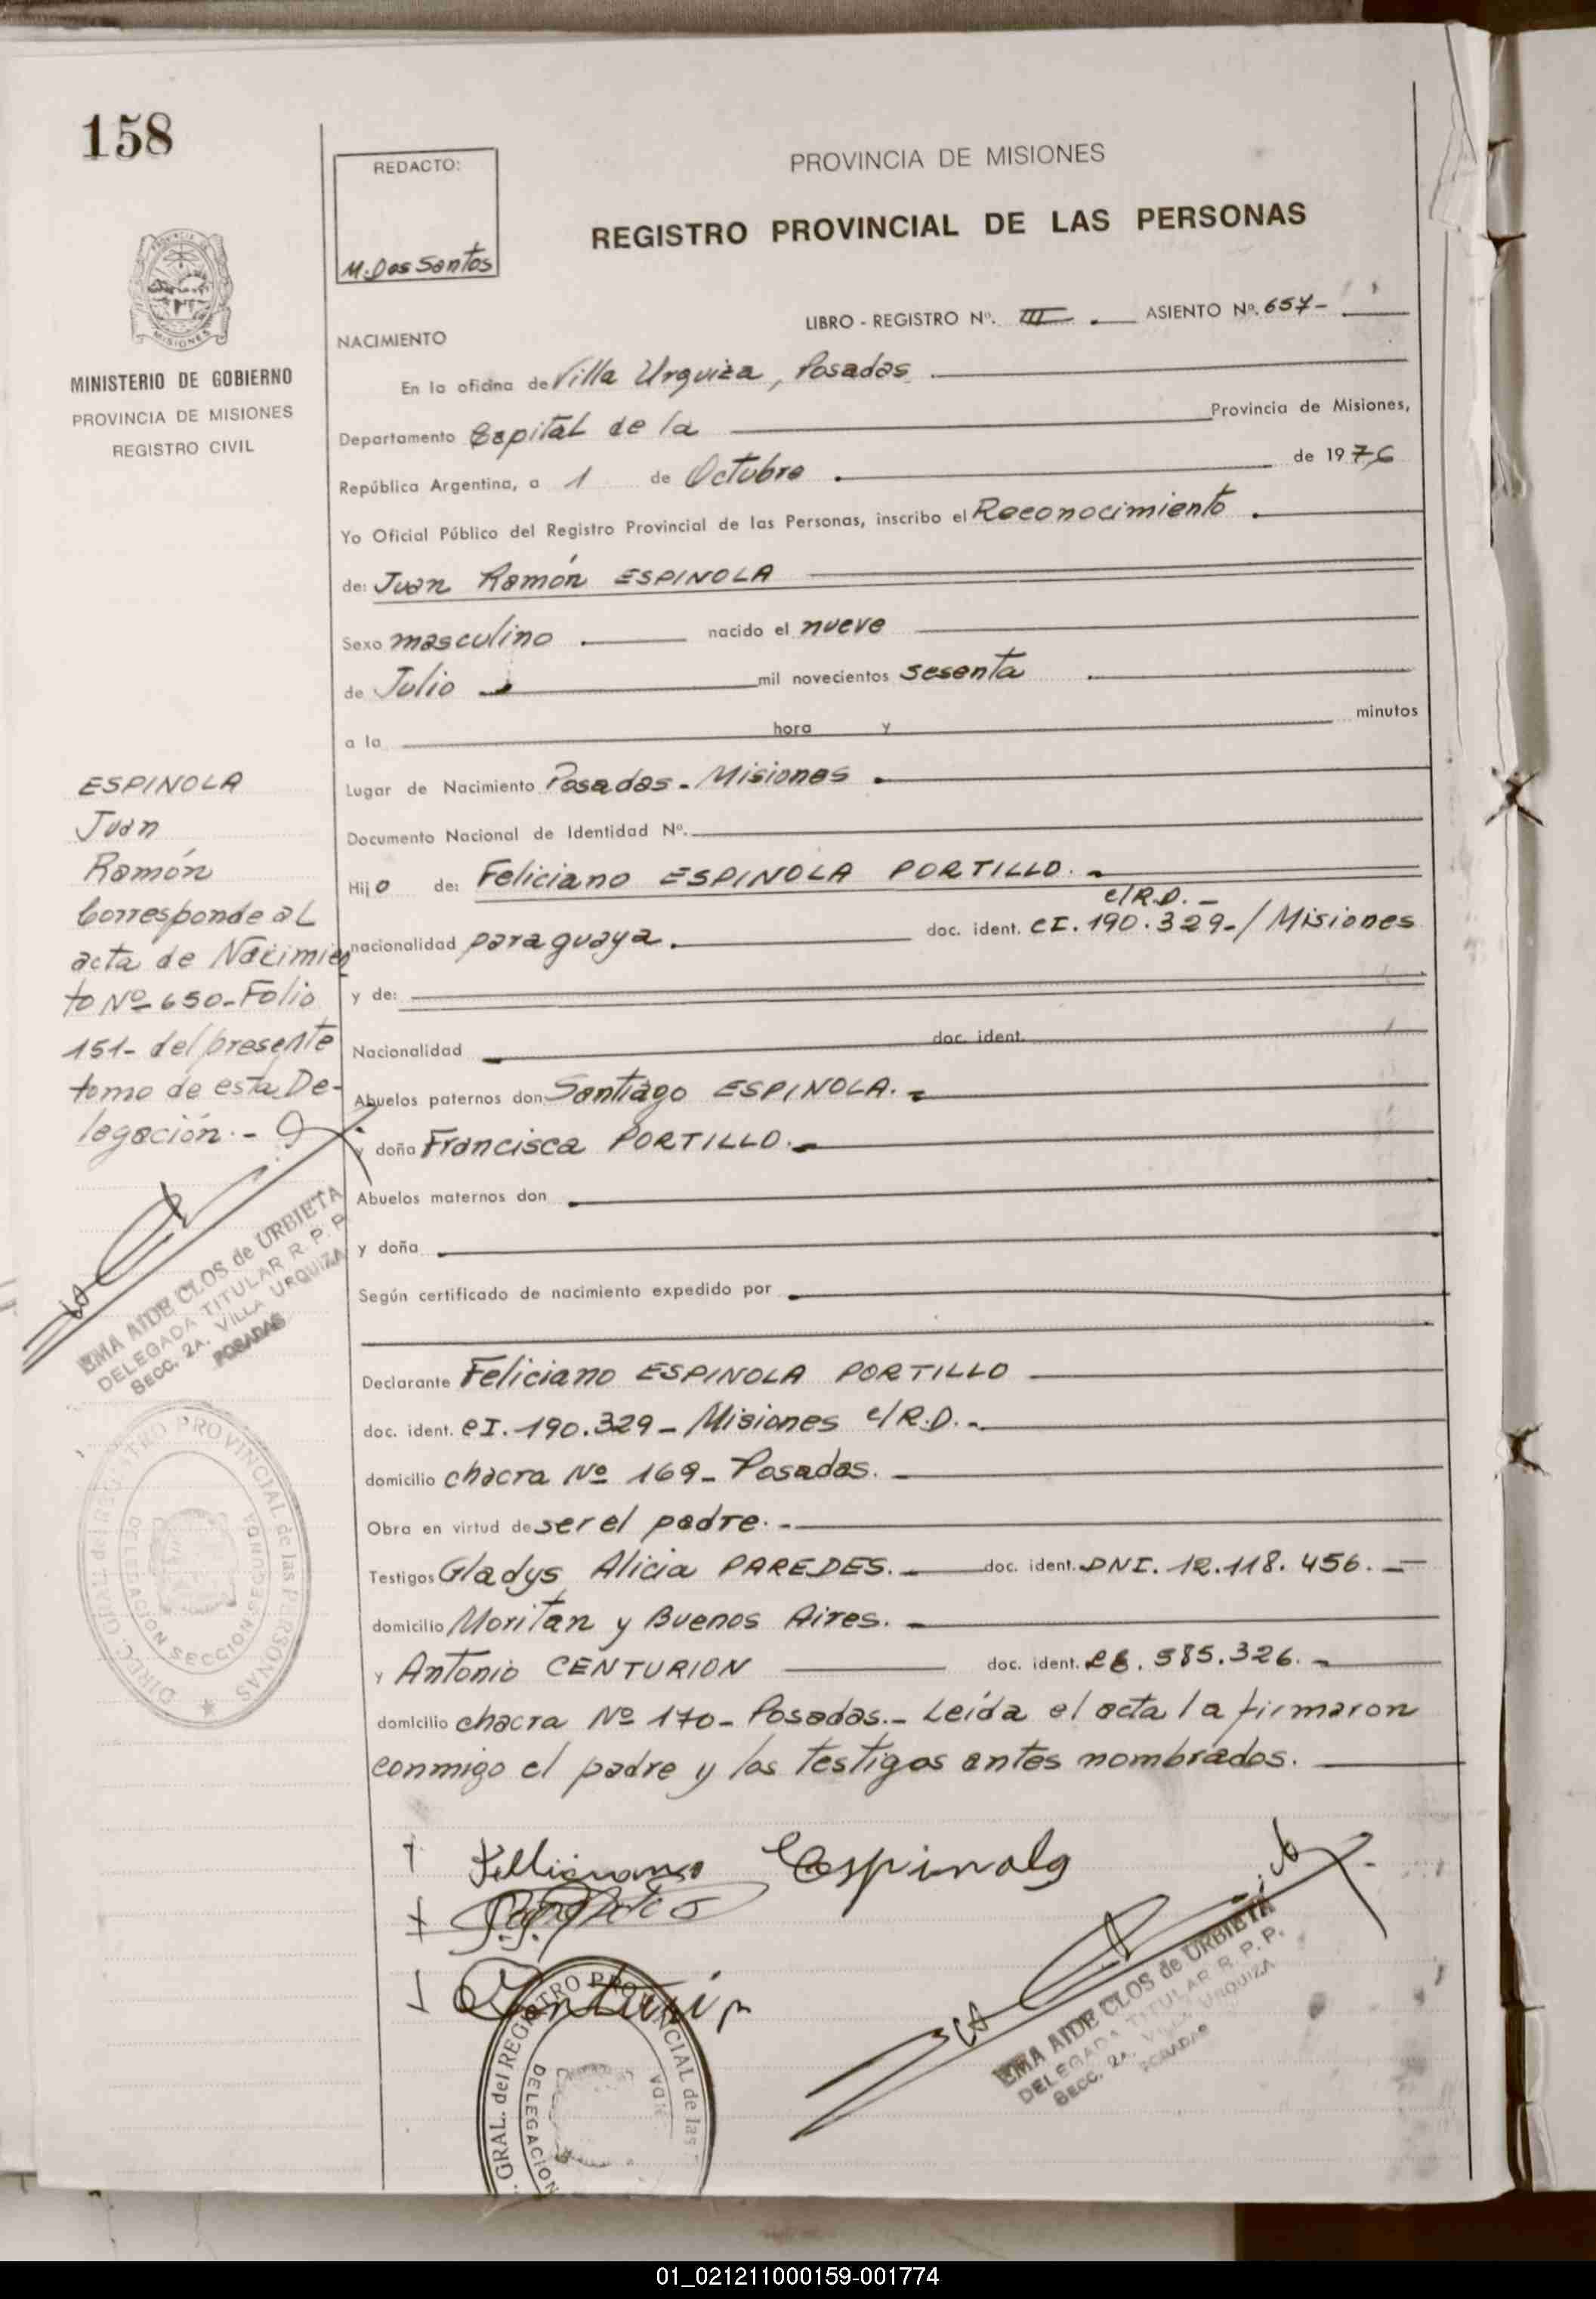 158
REDACTO:
M. Dos Santos
PROVINCIA DE MISIONES
REGISTRO PROVINCIAL DE LAS PERSONAS
MINISTERIO DE GOBIERNO
PROVINCIA DE MISIONES
REGISTRO CIVIL
LIBRO - REGISTRO Nº. III. ASIENTO Nº. 657-
NACIMIENTO
En la oficina de Villa Urquiza, Posadas
Departamento Capital de la Provincia de Misiones,
República Argentina, a 1 de Octubre. de 1976
Yo Oficial Público del Registro Provincial de las Personas, inscribo el Reconocimiento.
de: Juan Ramón ESPINOLA
Sexo masculino. nacido el nueve
de Julio mil novecientos sesenta
a la hora y minutos
Lugar de Nacimiento Posadas - Misiones.
Documento Nacional de Identidad Nº.
Hijo de: Feliciano ESPINOLA PORTILLO.-
c/R.D.-
nacionalidad paraguaya. doc. ident. CI. 190.329-/Misiones
y de:
Nacionalidad doc. ident.
Abuelos paternos don Santiago ESPINOLA.-
y doña Francisca PORTILLO.-
Abuelos maternos don
y doña
Según certificado de nacimiento expedido por
Declarante Feliciano ESPINOLA PORTILLO
doc. ident. CI. 190.329- Misiones c/R.D.-
domicilio chacra Nº 169- Posadas.-
Obra en virtud de ser el padre.-
Testigos Gladys Alicia PAREDES.- doc. ident. DNI. 12.118.456.-
domicilio Moritan y Buenos Aires.-
y Antonio CENTURION doc. ident. 585.326.-
domicilio chacra Nº 170- Posadas.- Leída el acta la firmaron
conmigo el padre y los testigos antes nombrados.
ESPINOLA
Juan
Ramón
Corresponde al
acta de Nacimien
to Nº 650-Folio
151- del presente
tomo de esta De-
legación.-
EMA AIDE CLOS de URBIETA
DELEGADA TITULAR R. P. P.
SECC. 2A. VILLA URQUIZA
POSADAS
DIREC. GRAL. del REGISTRO PROVINCIAL de las PERSONAS
DELEGACION SECCION SEGUNDA
Espinola
EMA AIDE CLOS de URBIETA
DELEGADA TITULAR R. P. P.
SECC. 2A. VILLA URQUIZA
POSADAS
GRAL. del REGISTRO PROVINCIAL de las
DELEGACION
01_021211000159-001774